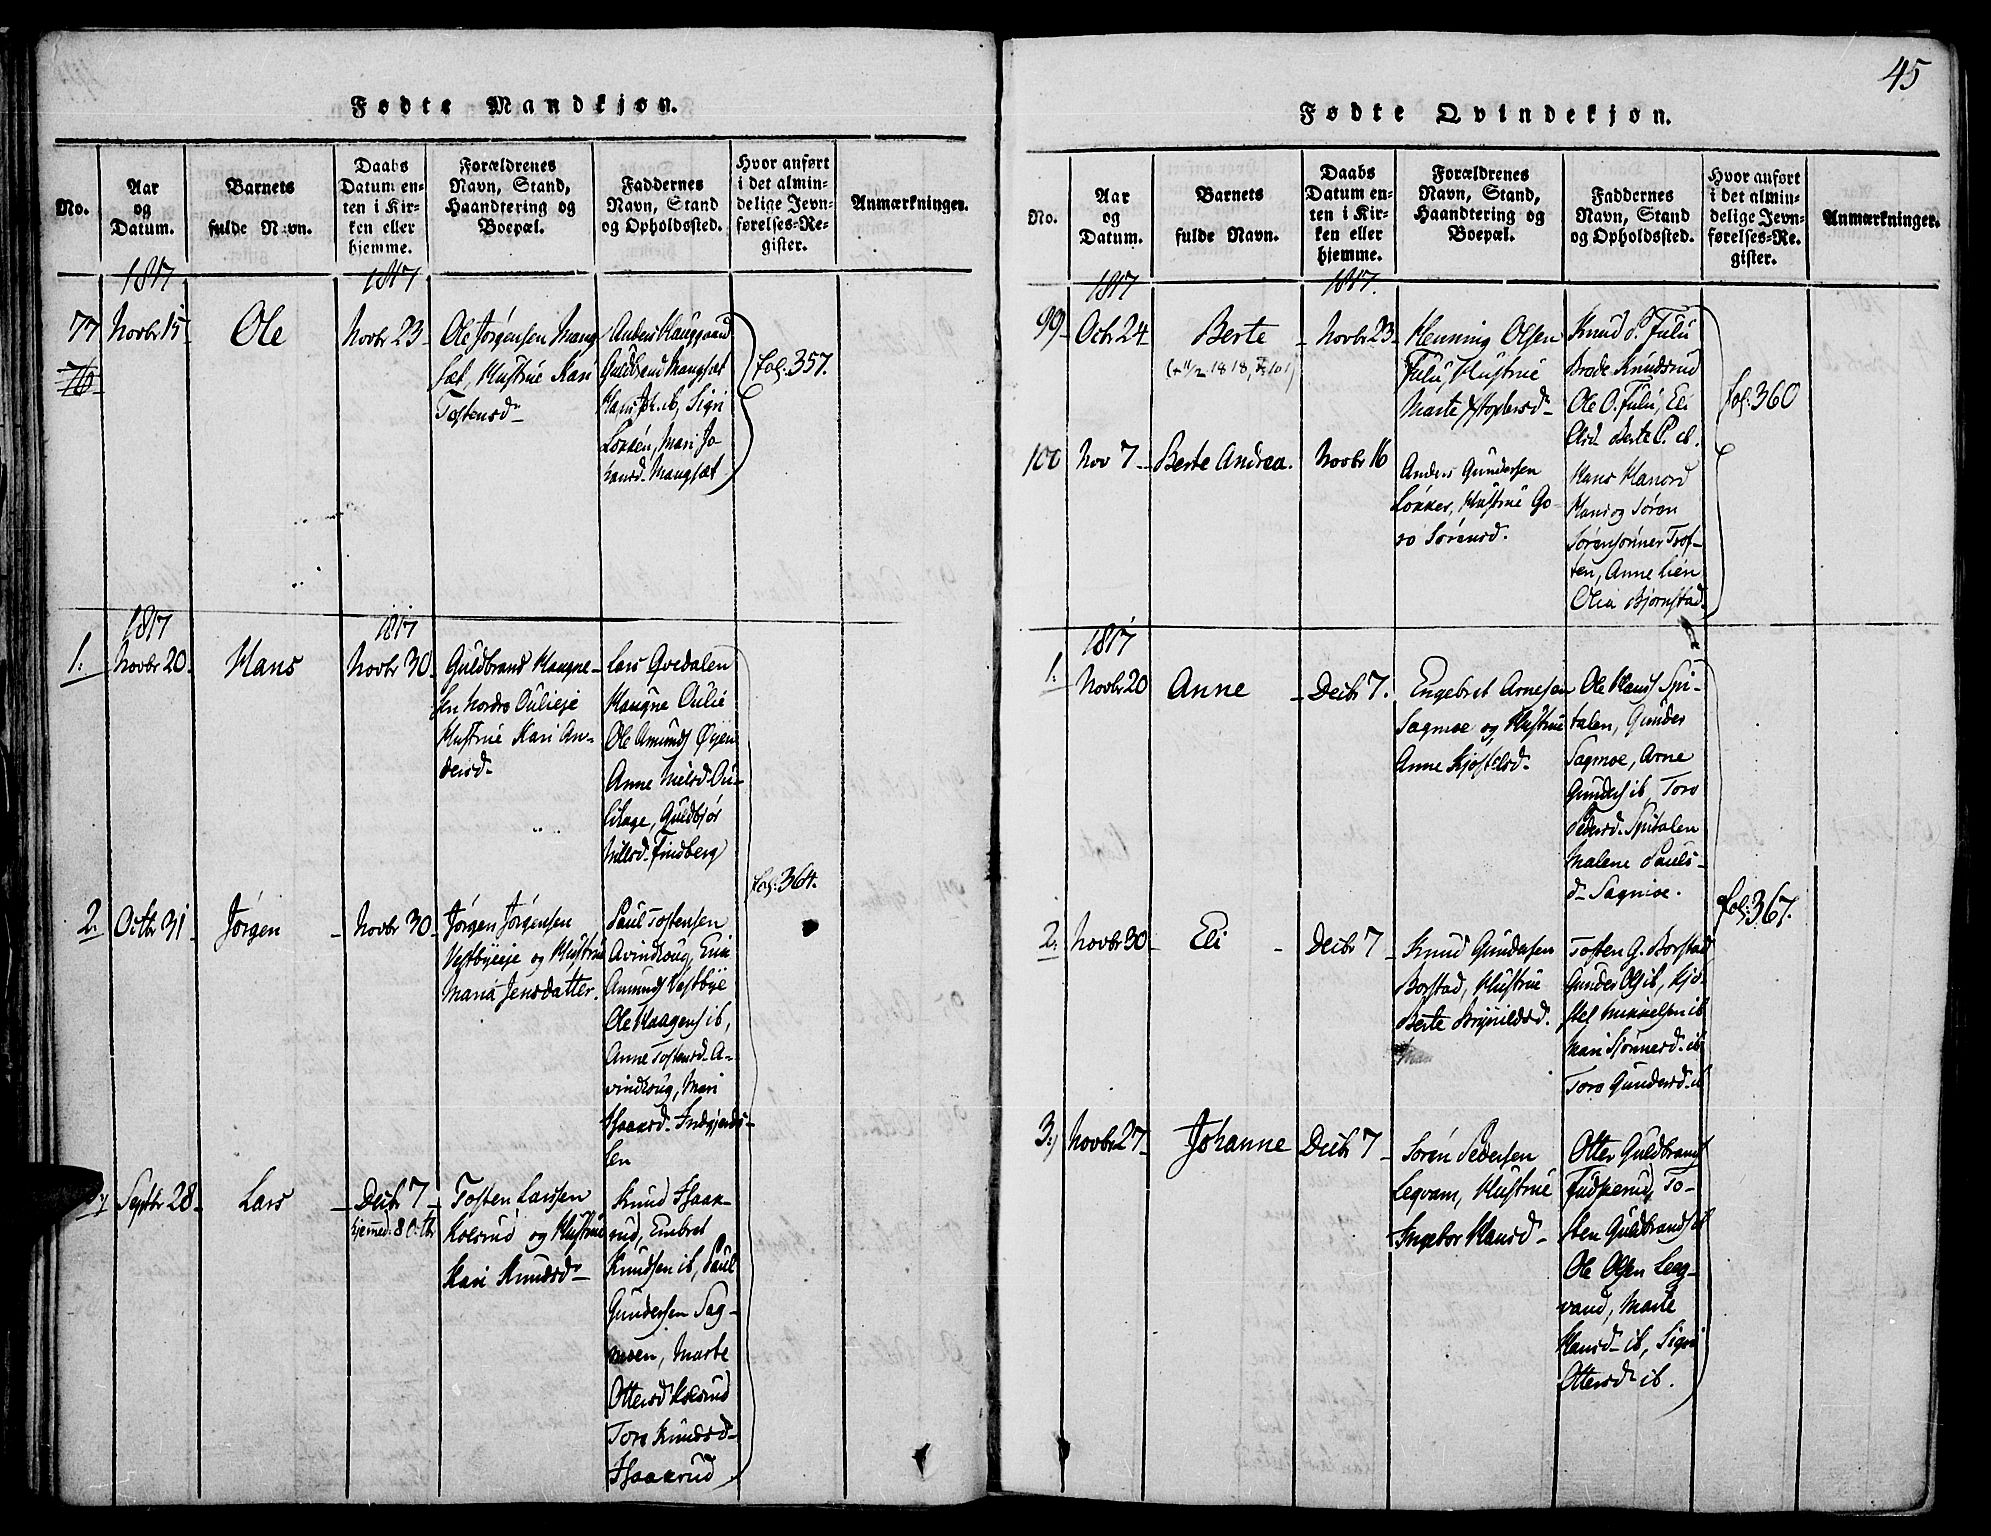 Fødte Mandkjøn.
No.
Aar
og
Datum.
Barnets
fulde Navn.
Daabs
Datum en-
ten i Kir-
ken eller
hjemme.
Forældrenes
Navn, Stand,
Haandtering og
Boepæl.
Faddernes
Navn, Stand
og Opholdssted.
Hvor anført
i det almin-
delige Jevn-
førelses-Re-
gister.
Anmærkninger.
1817
1817
77
76
Novbr 15
Ole
Novbr 23
Ole Jørgensen Mang
sæt, Hustrue Kari
Tostensd
Anders Hauggaard
Guldbrand Mangsæt
Hans ib, Sigri
Løkken, Mari Jo-
hansd. Mangsæt
fol. 357.
1817
1817
1.
Novbr 20
Hans
Novbr 30
Guldbrand Haugne-
sen Nordre Oulieeje
Hustrue Kari An-
dersd
Lars Qvedalen
Haugne Oulie
Ole Amunds Øyen
Anne Nielsd. Ou-
lilage, Guldbjør
Nilsd. Findberg
fol. 364.
2.
Octbr 31
Jørgen
Novbr 30
Jørgen Jørgensen
Vestbyeeje og Hustrue
Maria Jensdatter.
Paul Tostensen
Avindsoug, Erik
Amunds Vestbye
Ole Haagens ib,
Anne Tostensd. A-
vindsoug, Mari
Isaaksd. Indgjerds-
len
Septbr 28
Lars
Decbr 7
hjemmed. 8 Octbr
Tosten Larssen
Kolsrud og Hustrue
Kari Knudsd
Knud Haak-
rud, Enebret
Knudsen ib, Paul
Gundersen Sag-
moen, Marte
Ottersd Kolsrud
Toro Knudsd
Haakrud
45
Fødte Qvindekjøn.
No.
Aar
og
Datum.
Barnets
fulde Navn.
Daabs
Datum en-
ten i Kir-
ken eller
hjemme.
Forældrenes
Navn, Stand,
Haandtering og
Boepæl.
Faddernes
Navn, Stand
og Opholdssted.
Hvor anført
i det almin-
delige Jevn-
førelses-Re-
gister.
Anmærkninger.
1817
1817.
99
Octbr 24
Berte
Novbr 23
Henning Olsen
Fulu, Hustrue
Marte Xstophersd
Knud P. Fulu
Brede Knudsrud
Ole O. Fulu, Eli
Olsd. Berte P. ib.
fol. 360
100
Nov 7
Berte Andrea.
Novbr 16
Anders Gundersen
Løkker, Hustrue Go-
ro Sørensd.
Hans Hanord
Hans og Søren
Sørensønner Tof-
ten, Anne Lien
Olia Bjørnstad.
1817
1.
Novbr 20
Anne
Decbr 7.
Engebret Arnesen
Sagmoe og Hustrue
Anne Kjostelsd
Ole Hans Spi-
talen, Gunder
Sagmoe, Arne
Gunders ib, Toro
Pedersd. Spitalen
Malene Pauls-
d Sagmoe.
fol. 367.
2.
Novbr 30
Eli
Decbr 7
Knud Gundersen
Borstad, Hustrue
Berte Brynildsd.
Tosten G. Borstad
Gunder Ols ib, Kjø-
stel Mikkelsen ib
Mari Simensd. ib
Toro Gundersd. ib
3.
Novbr 27
Johanne
Decbr 7
Søren Pedersen
Legvam, Hustrue
Ingebor Hansd
Otter Guldbrands
Fudsperud, To-
sten Guldbrands ib
Ole Olsen Leeg-
vand, Marte
Hansd ib, Sigri
Ottersd ib.